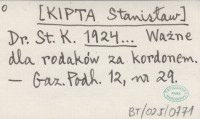 [KIPTA Stanisław]
Dr. St. K. 1924... Ważne
dla rodaków za kordonem.
— Gaz. Podh. 12, nr 29.
BT/025/0771